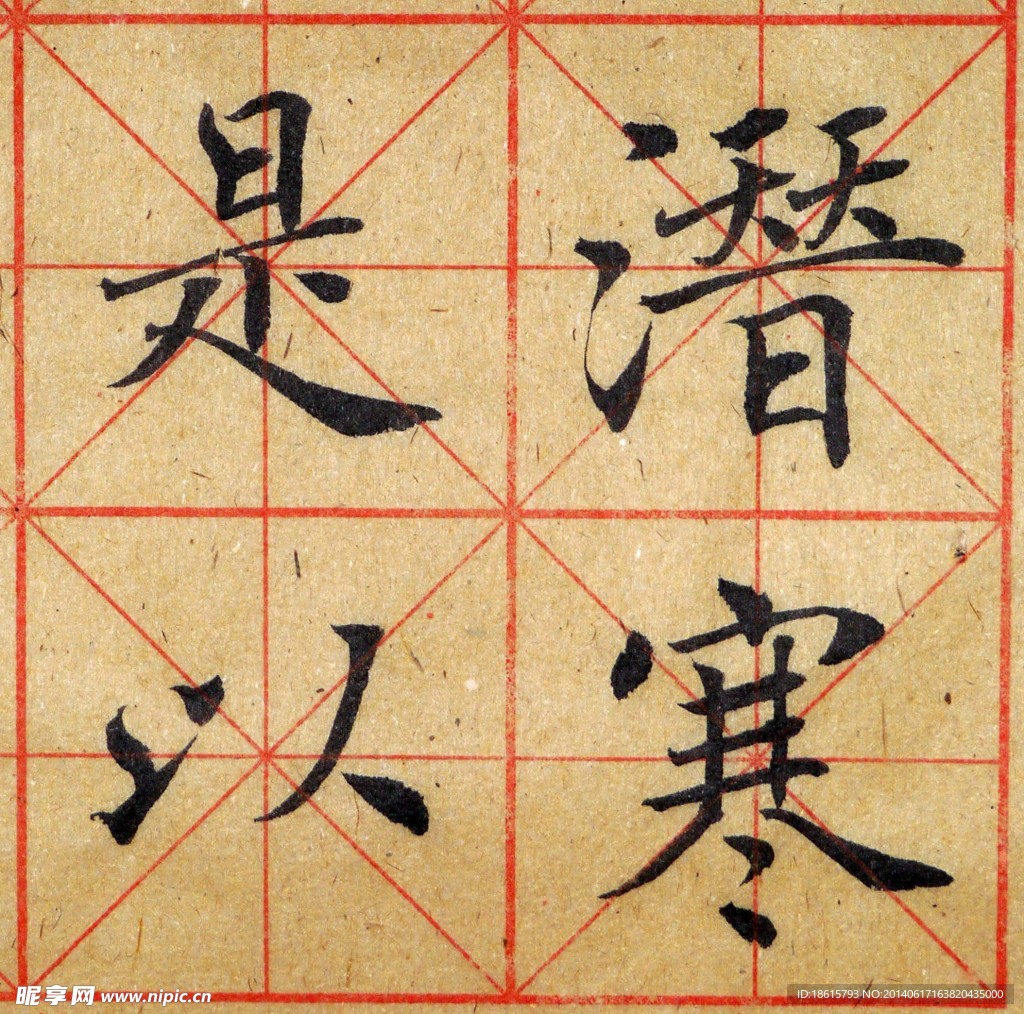 潜寒
是以
昵享网 www.nipic.cn
ID:18615793 NO:20140617163820435000